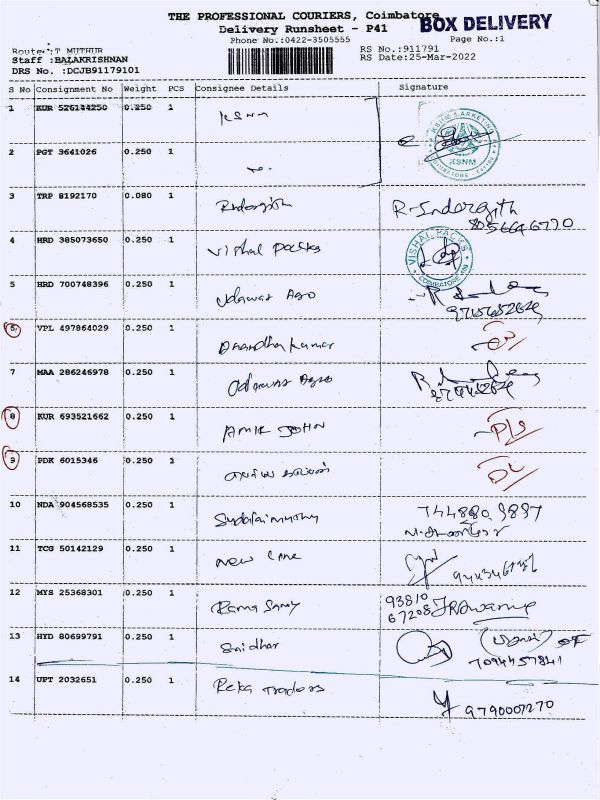 THE PROFESSIONAL COURIERS, Coimbatore
BOX DELIVERY
Delivery Runsheet - P41
Phone No.:0422-3505555
Page No.:1
Route:T MUTHUR
RS No.:911791
Staff :BALAKRISHNAN
RS Date:25-Mar-2022
DRS No. :DCJB91179101
S No Consignment No Weight PCS Consignee Details Signature
1 KUR 526144250 0.250 1 KSNM
KSNM
2 PGT 3641026 0.250 1
3 TRP 8192170 0.080 1 R-Indergith
4 HRD 385073650 0.250 1 Vishal Packs VISHAL PACKS
COIMBATORE
5 HRD 700748396 0.250 1 Udawar Agro
6 VPL 497864029 0.250 1 Anandha kumar
7 MAA 286246978 0.250 1 Udawar Agro
8 KUR 693521662 0.250 1 AMIR JOHN
9 PDK 6015346 0.250 1 DL
10 NDA 904568535 0.250 1
11 TCG 50142129 0.250 1 New Care
12 MYS 25368301 0.250 1 Rama Samy 93810
67208
13 HYD 80699791 0.250 1 Saidhar
7094457841
14 UPT 2032651 0.250 1 Reka Traders
9790007270